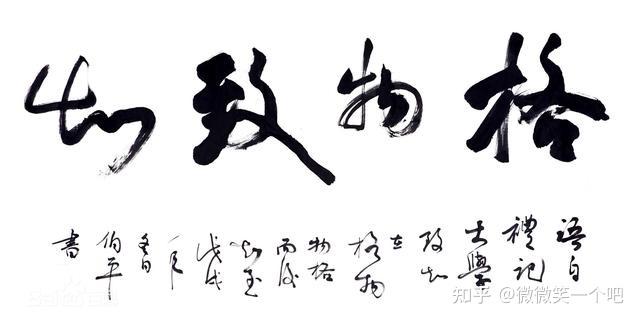 格物致知
语自
禮記
大學
致知
在
格物
物格
而後
知至
戊戌
冬日
伯平
書
知乎 @微微笑一个吧